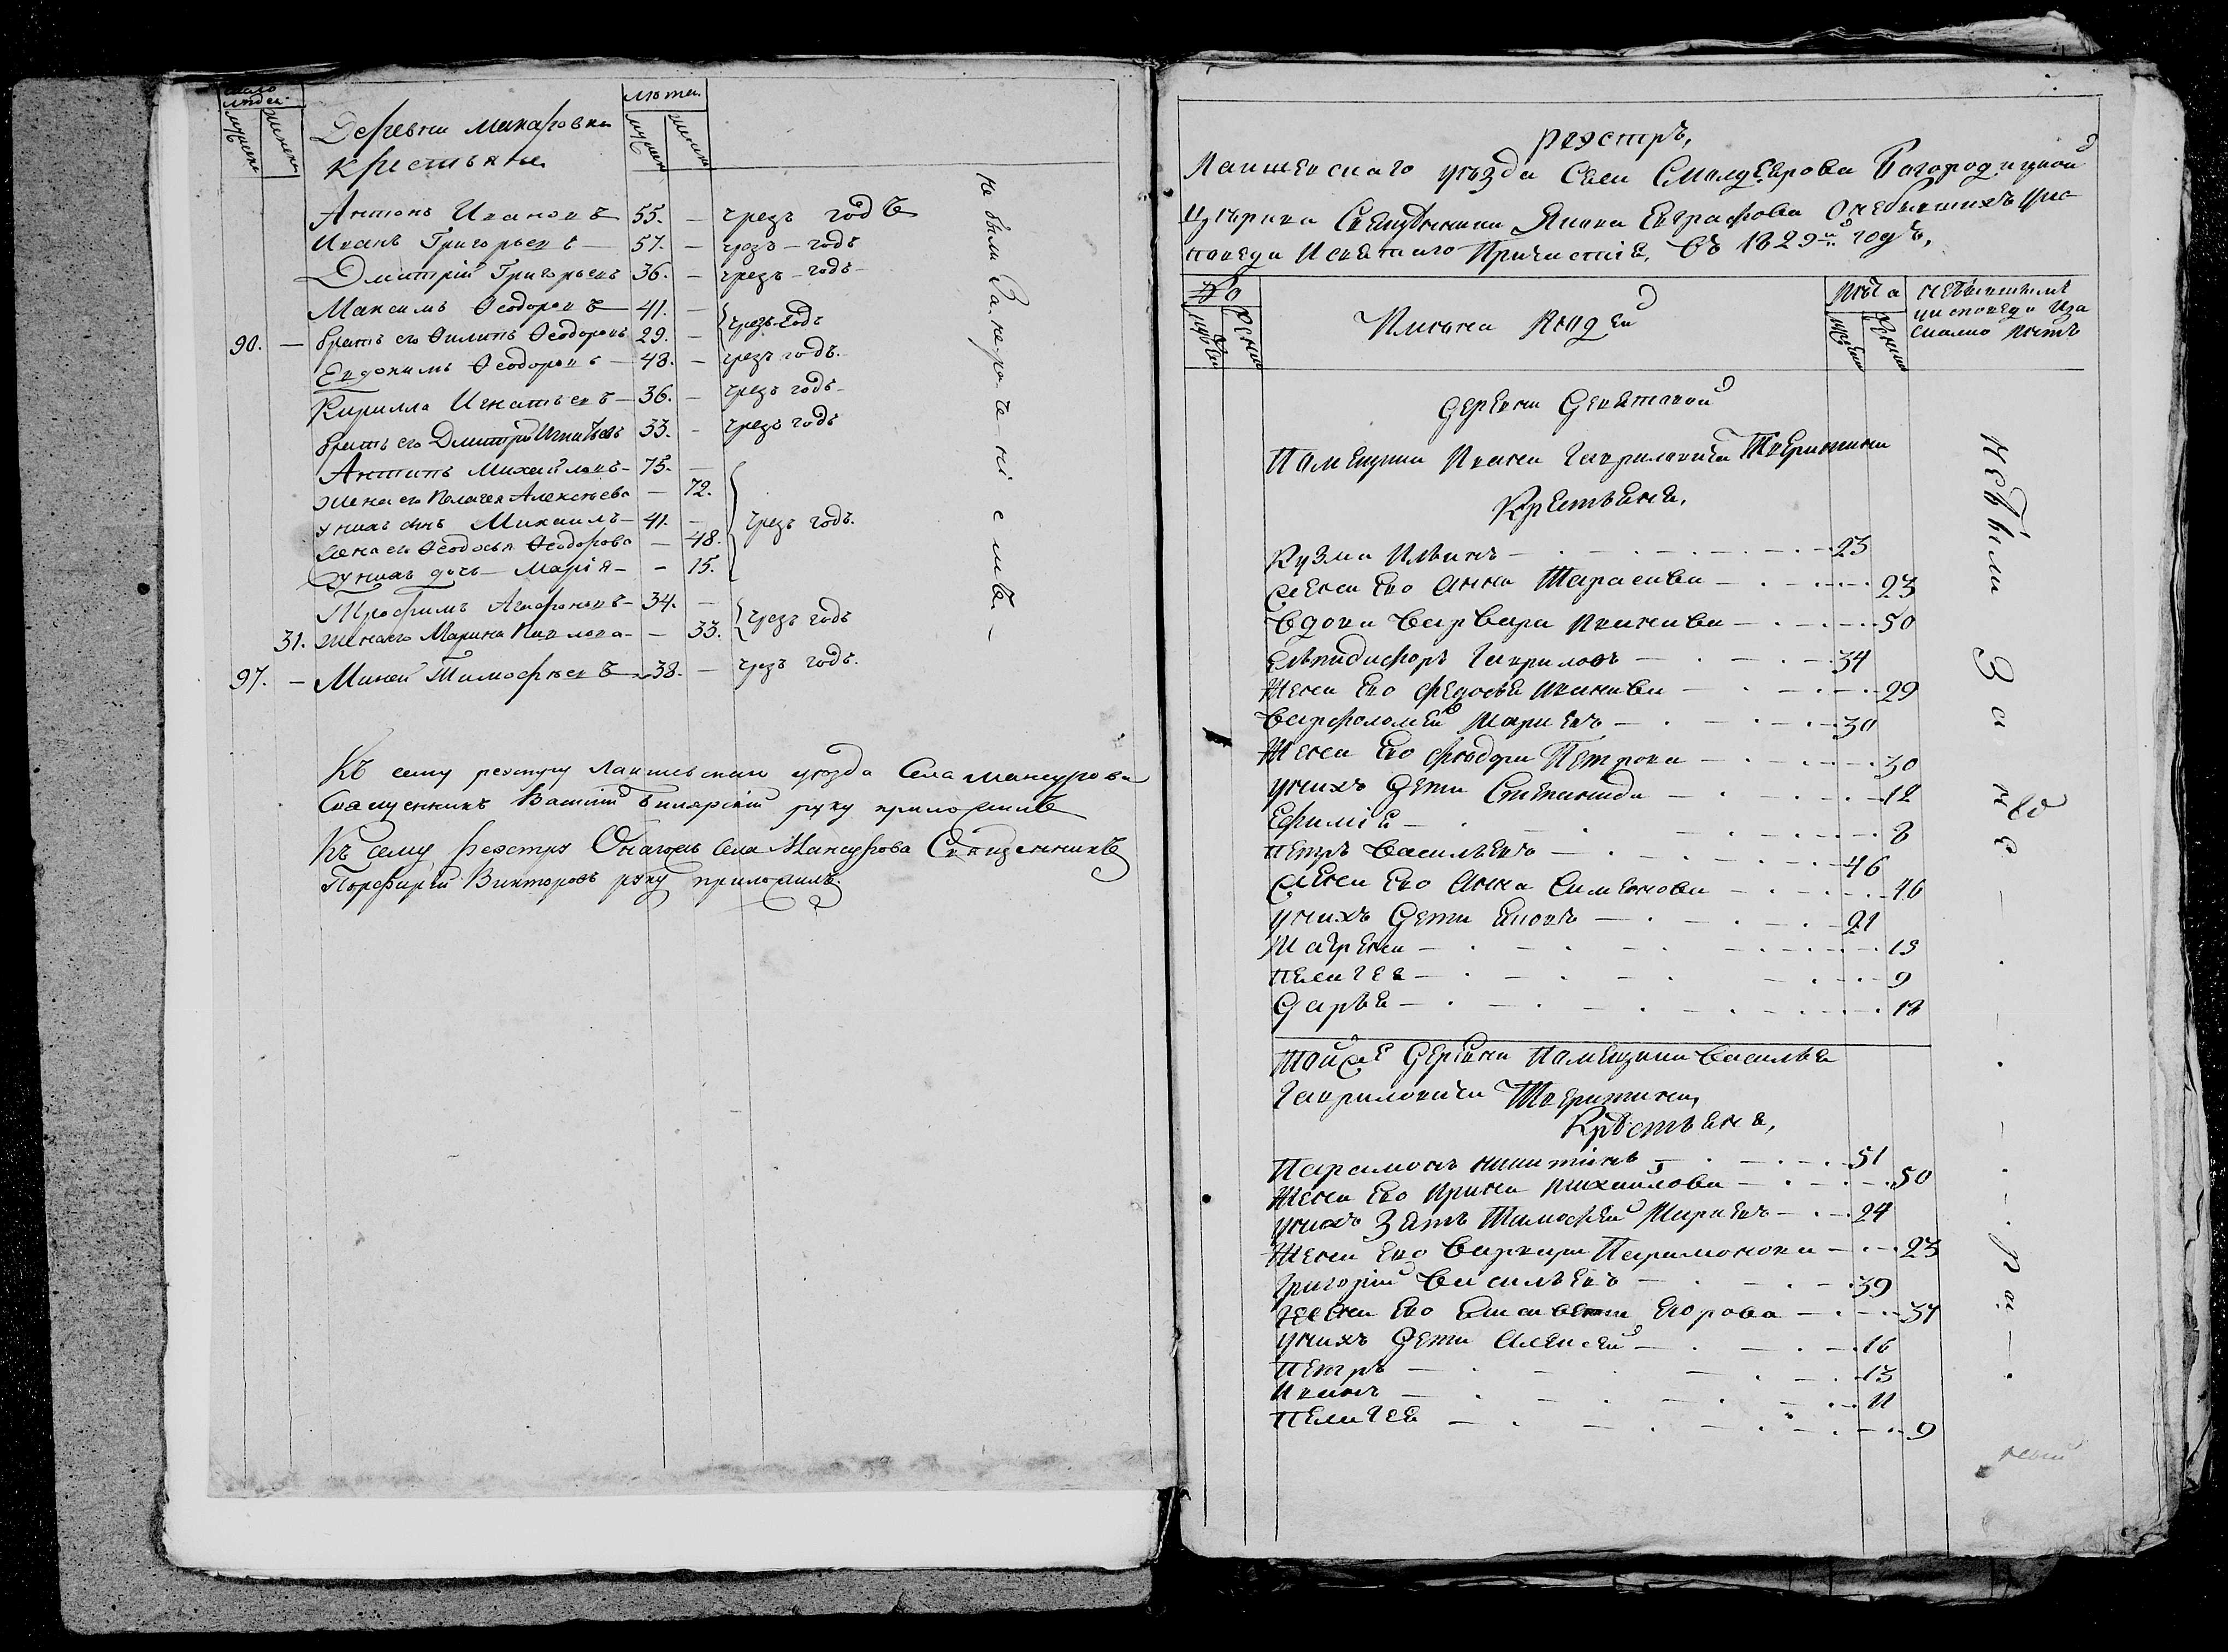 число людей
мужеск женск
Деревни Макаровки
крестьяне
лѣта
мужеск женск
Антонъ Ивановъ — 55. — чрезъ годъ
Иванъ Григорьевъ — 57. — чрезъ — годъ
Дмитрій Григорьевъ 36. — чрезъ — годъ —
Максимъ Ѳеодоровъ — 41. —
90. — братъ его Филипъ Ѳеодоровъ 29. — чрезъ годъ
Евдокимъ Ѳеодоровъ — 48. — чрезъ годъ.
Кирилла Игнатьевъ — 36. — чрезъ годъ —
братъ его Дмитрій Игнатьевъ 33. — чрезъ годъ
Антипъ Михайловъ — 75. —
жена его Пелагея Алексѣева — 72.
у нихъ сынъ Михаилъ — 41. — чрезъ годъ.
жена его Ѳеодосья Ѳеодорова — 48.
у нихъ дочь — Марія — — 15.
Трофимъ Агафоновъ — 34. —
31. жена его Марина Павлова — — 33. чрезъ годъ
97. — Миней Тимофѣевъ — 38. — чрезъ годъ.
не были за нерачені емъ —
Къ сему реэстру Лаишевскаго уѣзда Села Мансурова
Священникъ Василій Билярскій руку приложилъ
Къ сему реэстру Онагожъ Села Мансурова Священникъ
Порфирій Викторовъ руку приложилъ.
реэстръ,
Лаишевскаго уѣзда Села Смолдеярова Богородицкой
Церкви Священника Якова Евграфова О небывшихъ уис
поведи И святаго Причастія, Въ 1829м годѣ,
Имена людей
лѣта
небывшихъ
уисповеди Иза
сколко летъ
деревни Девятовой
Помещика Ивана Гавриловича Тверитина
Крестьяне,
Кузма Ильинъ — 23
жена Ево Анна Тарасова — 23
вдова Варвара Иванова — 50
Елпидифоръ Гавриловъ — 34
Жена Ево Федосья Иванова — 29
Варфоломей Марковъ — 30
Жена Ево Фіодора Петрова — 30
унихъ дети Степанида — 12
Ефимія — 8
Петръ Васильевъ — 46
жена Ево Анна Симонова — 46
унихъ дети — 21
Матрена — 15
Пелагея — 9
Дарья — 18
Тойже деревни Помещика Василья
Гавриловича Тверитина,
Крестьяне,
Парамонъ Никитинъ — 51
Жена Ево Ирина Михайлова — 50
унихъ Зять Тимофей Марковъ — 24
Жена Ево Варвара Парамонова — 23
Григорій Васильевъ — 39
жена Ево Елисавета Егорова — 34
унихъ дети Алексей — 16
Петръ — 13
Иванъ — 11
Пелагея — 9
небыли За не